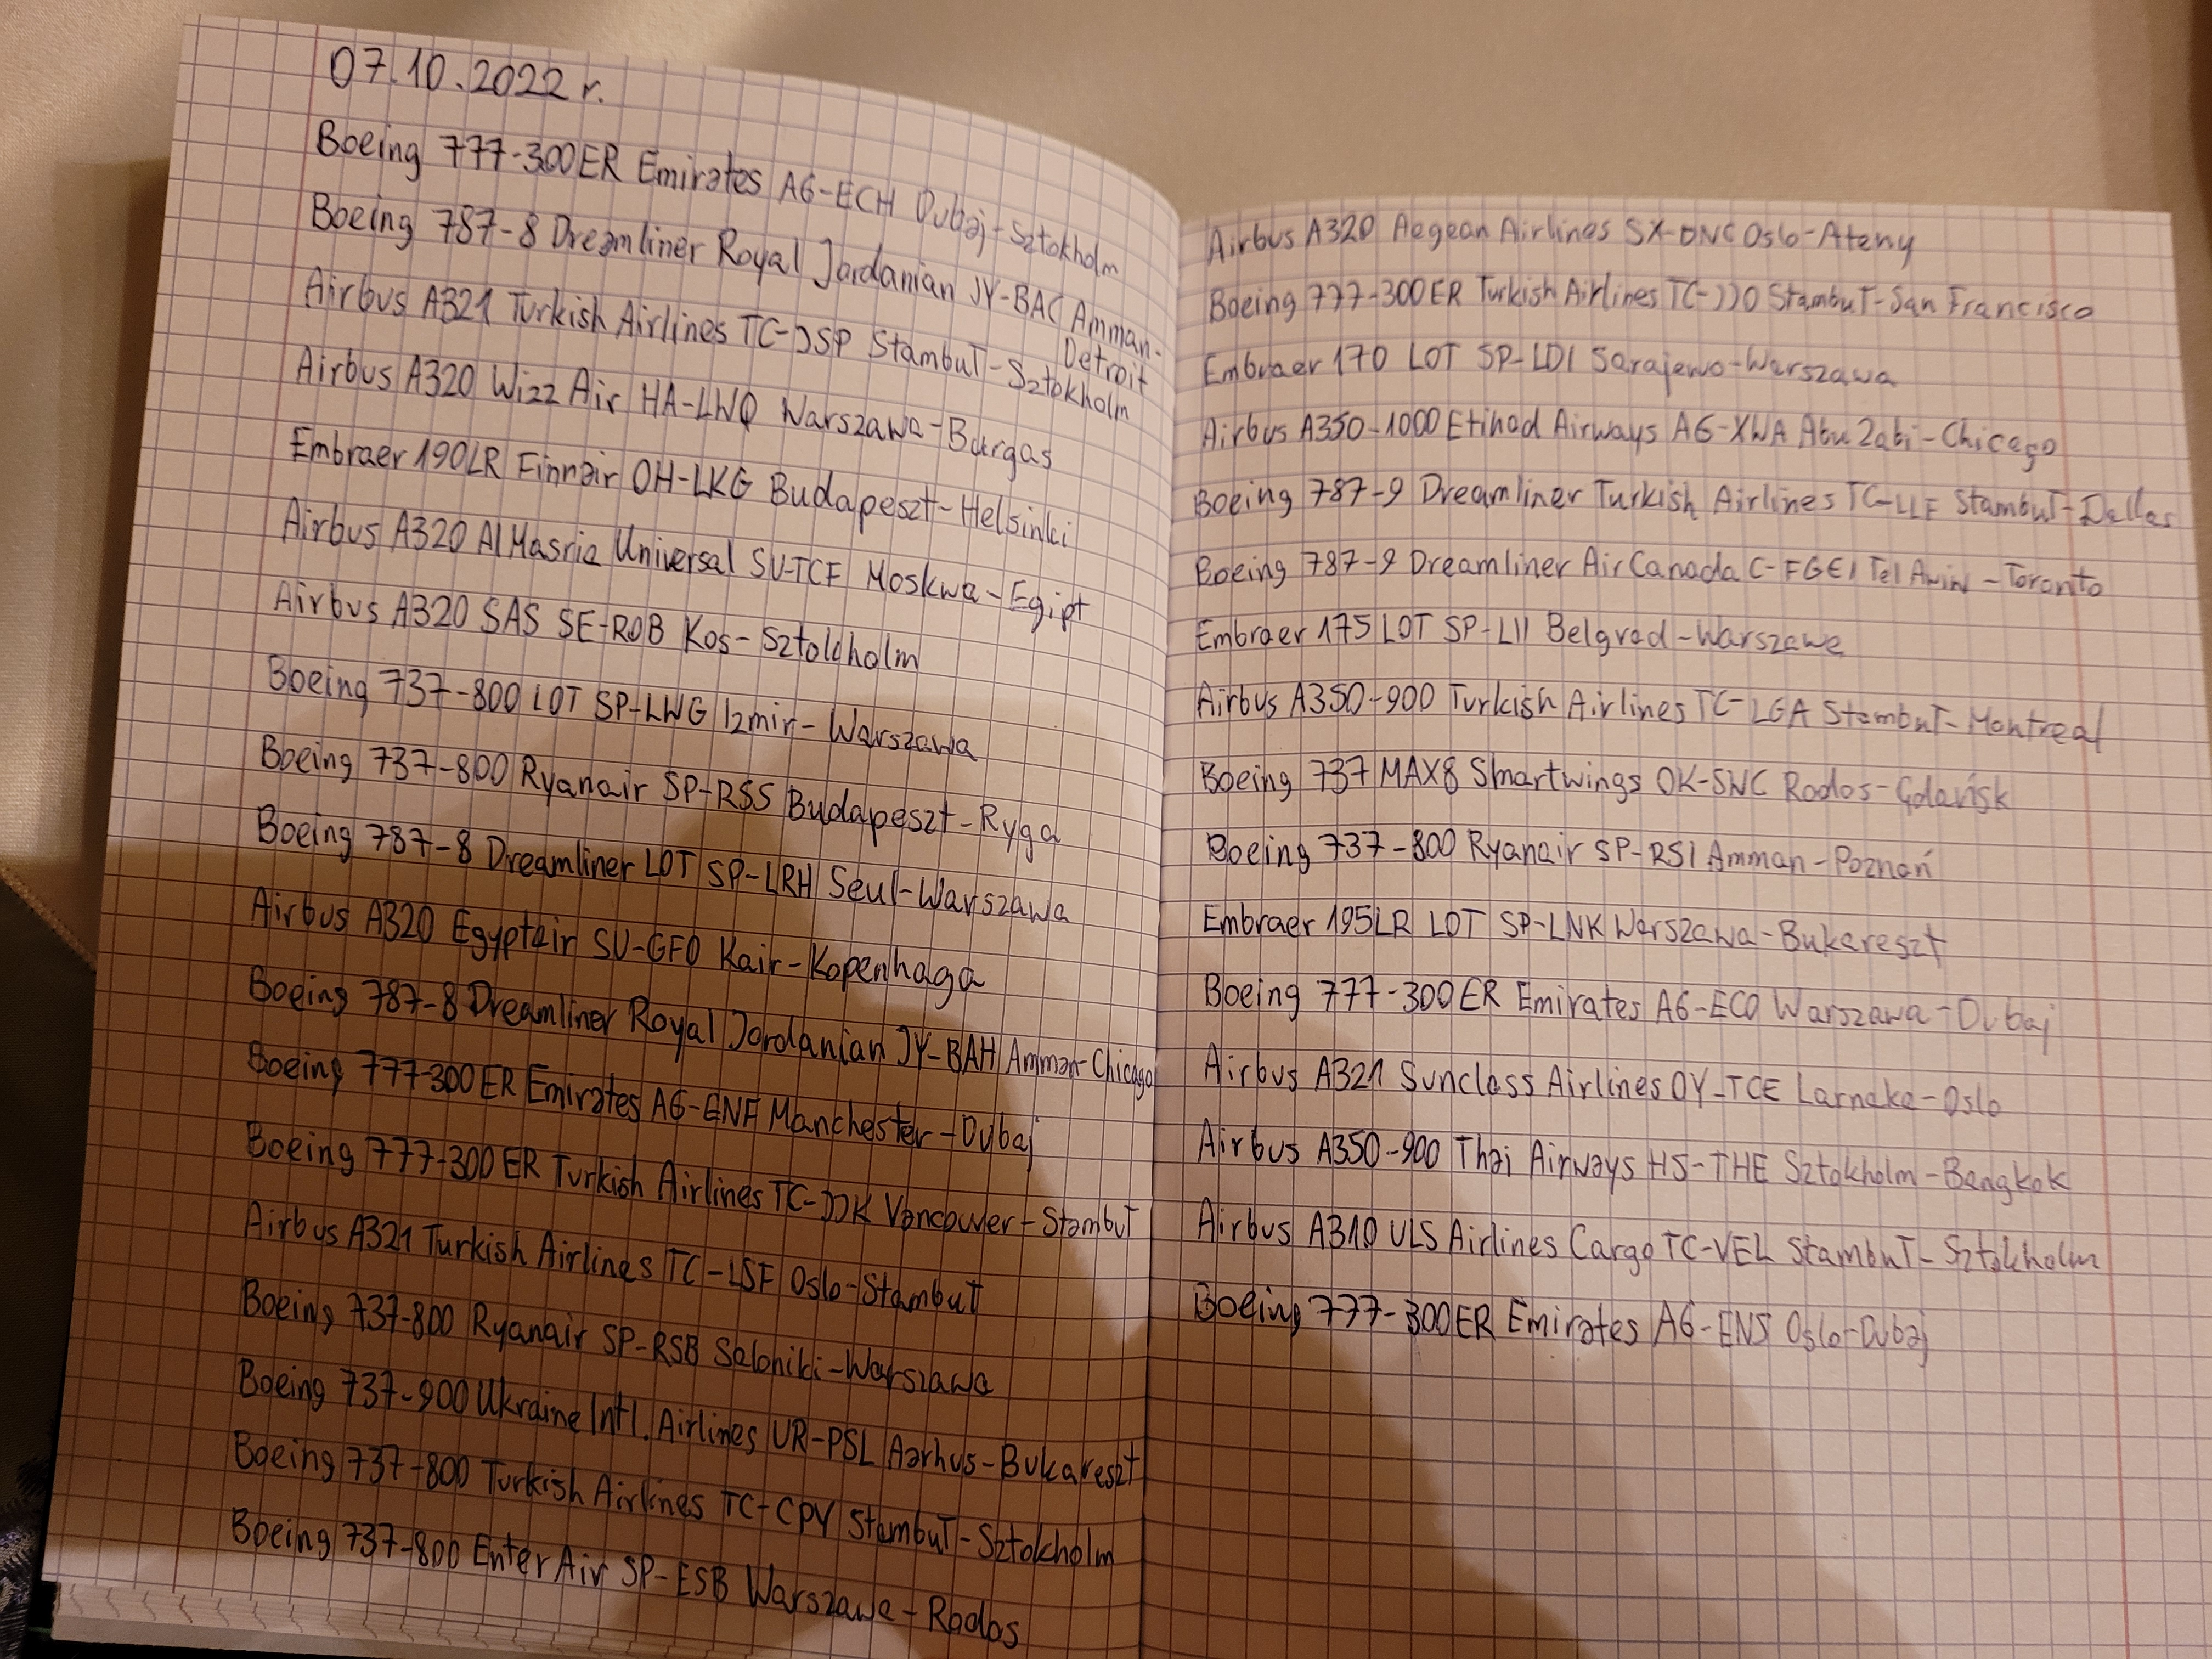 07.10.2022 r.
Boeing 777-300ER Emirates A6-ECH Dubaj-Sztokholm
Boeing 787-8 Dreamliner Royal Jordanian JY-BAC Amman-
Detroit
Airbus A321 Turkish Airlines TC-JSP Stambuł-Sztokholm
Airbus A320 Wizz Air HA-LWQ Warszawa-Burgas
Embraer 190LR Finnair OH-LKG Budapeszt-Helsinki
Airbus A320 AlMasria Universal SU-TCF Moskwa-Egipt
Airbus A320 SAS SE-ROB Kos-Sztokholm
Boeing 737-800 LOT SP-LWG Izmir-Warszawa
Boeing 737-800 Ryanair SP-RSS Budapeszt-Ryga
Boeing 787-8 Dreamliner LOT SP-LRH Seul-Warszawa
Airbus A320 Egyptair SU-GFO Kair-Kopenhaga
Boeing 787-8 Dreamliner Royal Jordanian JY-BAH Amman-Chicago
Boeing 777-300ER Emirates A6-ENF Manchester-Dubaj
Boeing 777-300ER Turkish Airlines TC-JJK Vancouver-Stambuł
Airbus A321 Turkish Airlines TC-LSF Oslo-Stambuł
Boeing 737-800 Ryanair SP-RSB Saloniki-Warszawa
Boeing 737-900 Ukraine Intl. Airlines UR-PSL Aarhus-Bukareszt
Boeing 737-800 Turkish Airlines TC-CPV Stambuł-Sztokholm
Boeing 737-800 Enter Air SP-ESB Warszawa-Rodos
Airbus A320 Aegean Airlines SX-DNC Oslo-Ateny
Boeing 777-300ER Turkish Airlines TC-JJO Stambuł-San Francisco
Embraer 170 LOT SP-LDI Sarajewo-Warszawa
Airbus A350-1000 Etihad Airways A6-XWA Abu Zabi-Chicago
Boeing 787-9 Dreamliner Turkish Airlines TC-LLF Stambuł-Dallas
Boeing 787-9 Dreamliner Air Canada C-FGEI Tel Awiw-Toronto
Embraer 175 LOT SP-LII Belgrad-Warszawa
Airbus A350-900 Turkish Airlines TC-LGA Stambuł-Montreal
Boeing 737 MAX8 Smartwings OK-SWC Rodos-Gdańsk
Boeing 737-800 Ryanair SP-RSI Amman-Poznań
Embraer 195LR LOT SP-LNK Warszawa-Bukareszt
Boeing 777-300ER Emirates A6-ECO Warszawa-Dubaj
Airbus A321 Sunclass Airlines OY-TCE Larnaka-Oslo
Airbus A350-900 Thai Airways HS-THE Sztokholm-Bangkok
Airbus A310 ULS Airlines Cargo TC-VEL Stambuł-Sztokholm
Boeing 777-300ER Emirates A6-ENS Oslo-Dubaj